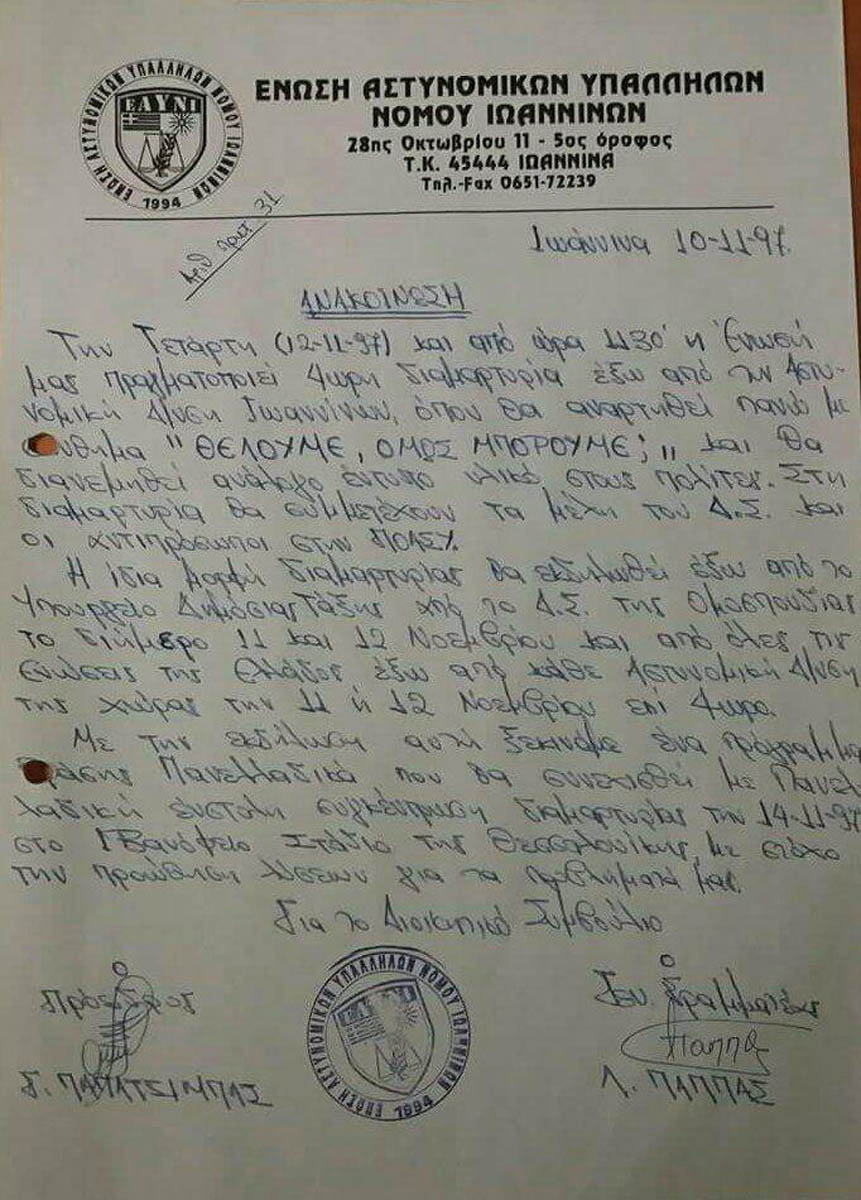 ΕΝΩΣΗ ΑΣΤΥΝΟΜΙΚΩΝ ΥΠΑΛΛΗΛΩΝ ΝΟΜΟΥ ΙΩΑΝΝΙΝΩΝ
ΕΑΥΝΙ
1994
ΕΝΩΣΗ ΑΣΤΥΝΟΜΙΚΩΝ ΥΠΑΛΛΗΛΩΝ
ΝΟΜΟΥ ΙΩΑΝΝΙΝΩΝ
28ης Οκτωβρίου 11 - 5ος όροφος
Τ.Κ. 45444 ΙΩΑΝΝΙΝΑ
Τηλ.-Fax 0651-72239
Αριθ πρωτ. 31
Ιωάννινα 10-11-97.
ΑΝΑΚΟΙΝΩΣΗ
Την Τετάρτη (12-11-97) και από ώρα 1130' η Ένωσή
μας πραγματοποιεί 4ωρη διαμαρτυρία έξω από την Αστυ-
νομική Δ/νση Ιωαννίνων, όπου θα αναρτηθεί πανώ με
σύνθημα "ΘΕΛΟΥΜΕ, ΟΜΩΣ ΜΠΟΡΟΥΜΕ;" και θα
διανεμηθεί ανάλογο έντυπο υλικό στους πολίτες. Στη
διαμαρτυρία θα συμμετέχουν τα μέλη του Δ.Σ. και
οι αντιπρόσωποι στην ΠΟΑΣΥ.
Η ίδια μορφή διαμαρτυρίας θα εκδηλωθεί έξω από το
Υπουργείο Δημόσιας Τάξης από το Δ.Σ. της Ομοσπονδίας
το διήμερο 11 και 12 Νοεμβρίου και από όλες τις
Ενώσεις της Ελλάδος έξω από κάθε Αστυνομική Δ/νση
της χώρας την 11 ή 12 Νοεμβρίου επί 4ωρο.
Με την εκδήλωση αυτή ξεκινάμε ένα πρόγραμμα
δράσης Πανελλαδικά που θα συνεχισθεί με Πανελ
λαδική ένστολη συγκέντρωση διαμαρτυρίας την 14-11-97
στο Ιβανόφειο Στάδιο της Θεσσαλονίκης, με στόχο
την προώθηση λύσεων για τα προβλήματά μας.
Για το Διοικητικό Συμβούλιο
Ο
Πρόεδρος
Σ. ΠΑΠΑΤΣΙΜΠΑΣ
ΕΝΩΣΗ ΑΣΤΥΝΟΜΙΚΩΝ ΥΠΑΛΛΗΛΩΝ ΝΟΜΟΥ ΙΩΑΝΝΙΝΩΝ
1994
Ο
Γεν. Γραμματέας
Παππάς
Λ. ΠΑΠΠΑΣ